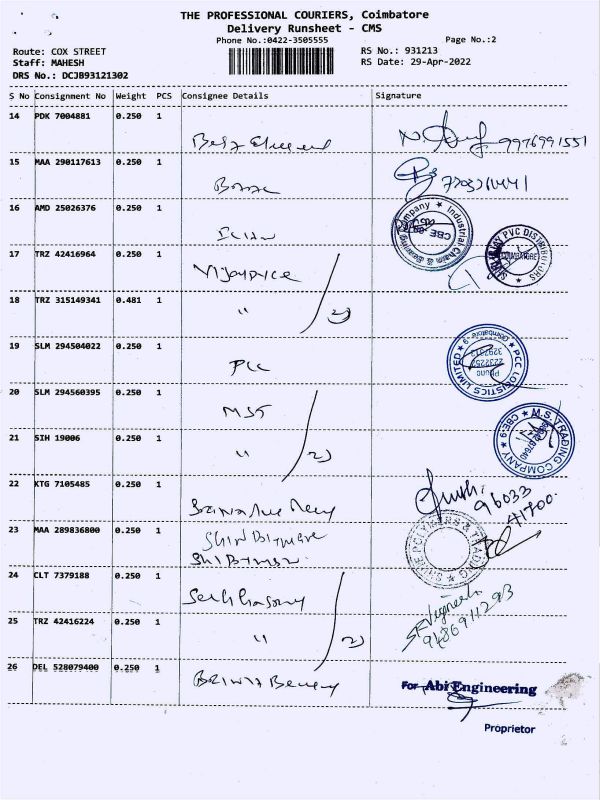 THE PROFESSIONAL COURIERS, Coimbatore
Delivery Runsheet - CMS
Phone No.:0422-3505555
Page No.:2
Route: COX STREET
RS No.: 931213
Staff: MAHESH
RS Date: 29-Apr-2022
DRS No.: DCJB93121302
S No Consignment No Weight PCS Consignee Details Signature
14 PDK 7004881 0.250 1
9976991551
15 MAA 290117613 0.250 1
16 AMD 25026376 0.250 1
Industrial Chain & Bearing Company ★ CBE
PVC DISTRIBUTORS
COIMBATORE
17 TRZ 42416964 0.250 1
18 TRZ 315149341 0.481 1
" 2)
19 SLM 294504022 0.250 1
PCC
★ PCC LOGISTICS LIMITED ★ Coimbatore - 9
20 SLM 294560395 0.250 1
MST
21 SIH 19006 0.250 1
" 2)
★ M.S. TRADING COMPANY ★ CBE-9
22 KTG 7105485 0.250 1
96033
41700
23 MAA 289836800 0.250 1
POLYMERS & TRADING
24 CLT 7379188 0.250 1
25 TRZ 42416224 0.250 1
" 2)
SR Vignesh
9486911293
26 DEL 528079400 0.250 1
For Abi Engineering
Proprietor